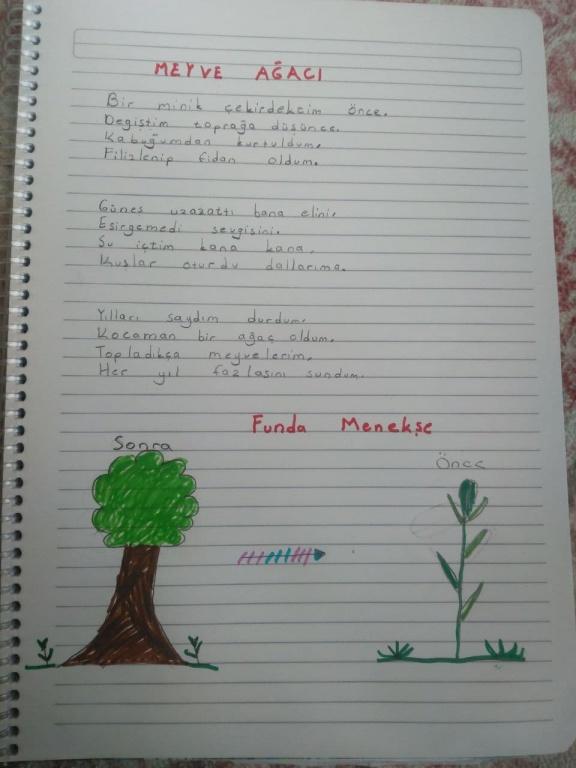 MEYVE AĞACI
Bir minik çekirdekcim önce.
Değiştim toprağa düşünce.
Kabuğumdan kurtuldum.
Filizlenip fidan oldum.
Güneş uzazattı bana elini.
Esirgemedi sevgisini.
Su içtim kana kana.
Kuşlar oturdu dallarıma.
Yılları saydım durdum.
Kocaman bir ağaç oldum.
Topladıkça meyvelerim.
Her yıl fazlasını sundum.
Funda Menekşe
Sonra
Önce